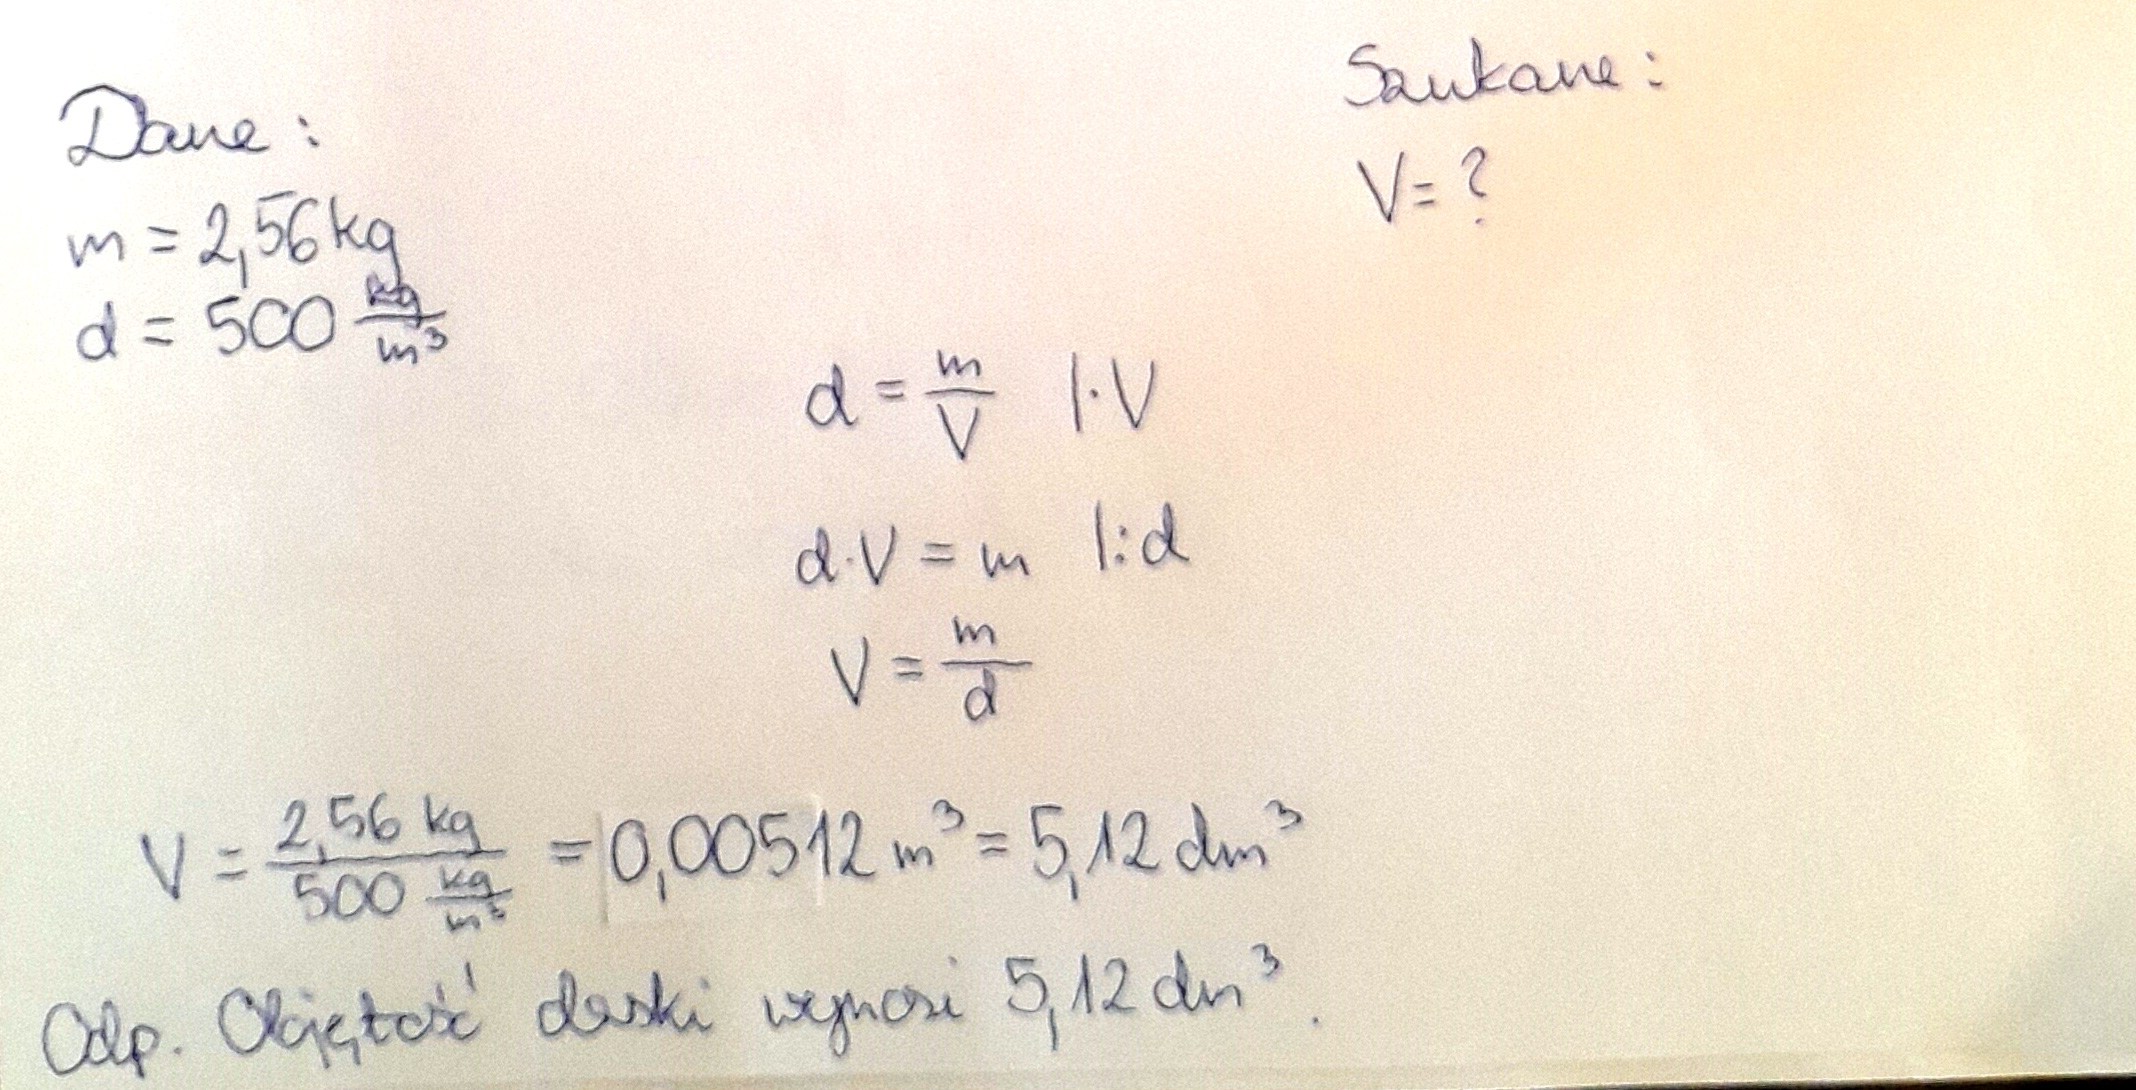 Dane:
Szukane:
m = 2,56 kg
V = ?
d = 500 kg/m³
d = m/V |·V
d·V = m |:d
V = m/d
V = 2,56 kg / 500 kg/m³ = 0,00512 m³ = 5,12 dm³
Odp. Objętość deski wynosi 5,12 dm³.